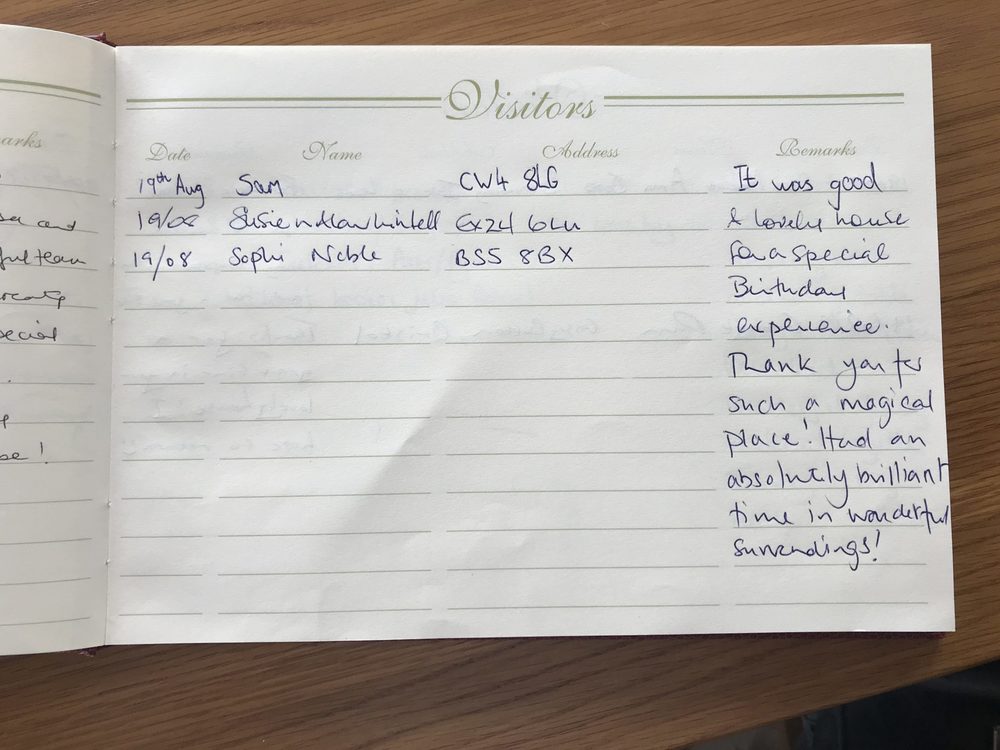 arks
ea and
ful team
pecial
se!
Visitors
Date Name Address Remarks
19th Aug Sam CW4 8LG It was good
19/08 Susie EX24 6LU A lovely house
19/08 Sophi Noble BS5 8BX for a special
Birthday
experience.
Thank you for
such a magical
place! Had an
absolutely brilliant
time in wonderful
surrendings!